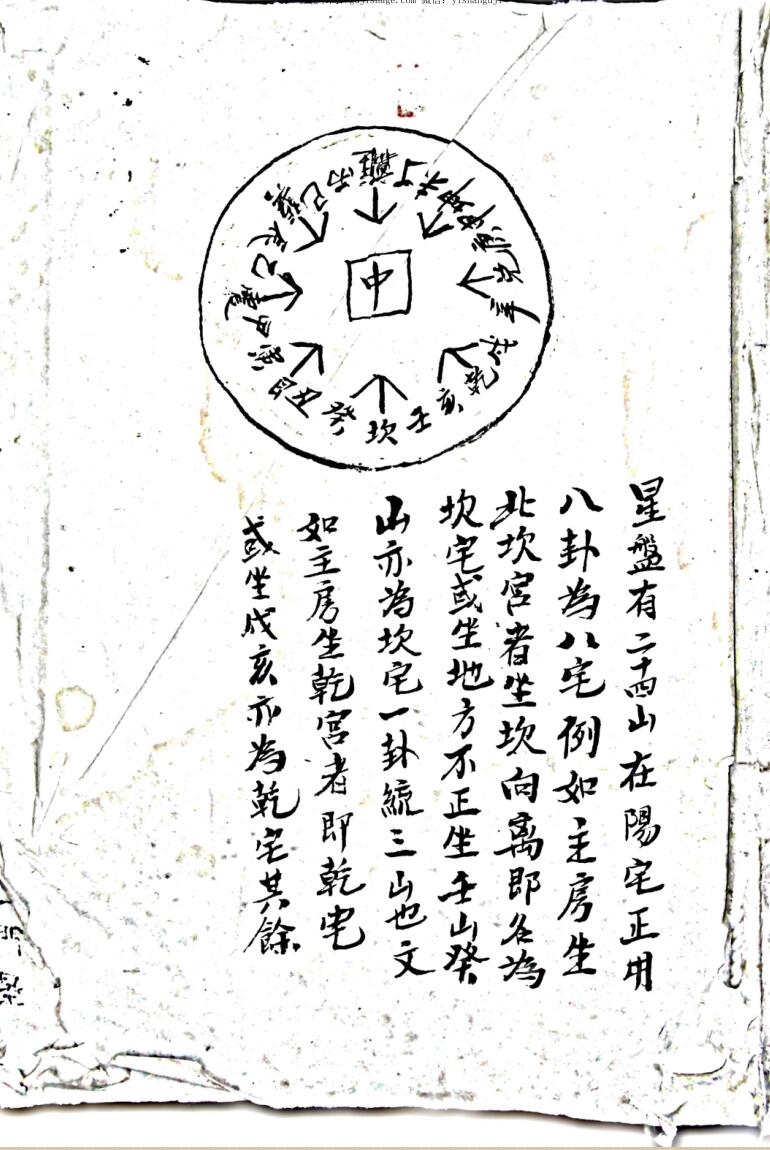 中
離
丁
未
坤
申
庚
辛
戌
乾
亥
壬
坎
癸
丑
艮
寅
甲
乙
辰
巽
巳
丙
星盤有二十四山在陽宅正用
八卦為八宅例如主房坐
北坎宮者坐坎向离即名為
坎宅或坐地方不正坐壬山癸
山亦為坎宅一卦統三山也文
如主房坐乾宮者即乾宅
或坐戌亥亦為乾宅其餘